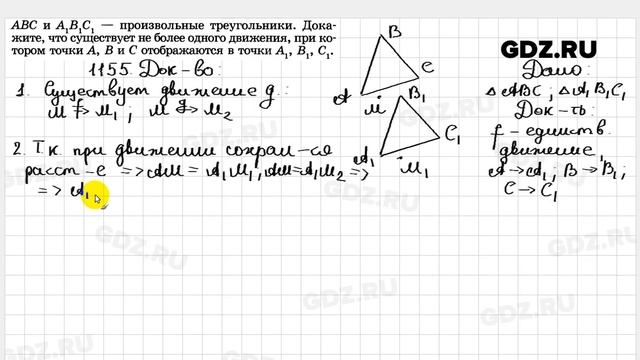 ABC и A₁B₁C₁ — произвольные треугольники. Дока-
жите, что существует не более одного движения, при ко-
тором точки A, B и C отображаются в точки A₁, B₁, C₁.
GDZ.RU
1155. Док-во:
1. Существует движение g:
M f→ M₁; M g→ M₂
2. Т.к. при движении сохран-ся
расст-е => AM = A₁M₁, AM = A₁M₂ =>
=> A₁
B
A
C
M
B₁
A₁
C₁
M₁
Дано:
△ABC; △A₁B₁C₁
Док-ть:
f - единств.
движение,
A→A₁; B→B₁;
C→C₁
GDZ.RU
GDZ.RU
GDZ.RU
GDZ.RU